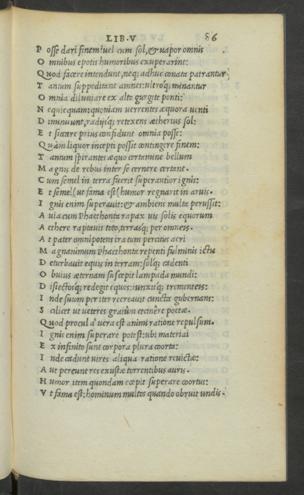 LIB. V 86
P osse dari finem: uel cum sol, & uapor omnis
O mnibus epotis humoribus exuperarint:
Q uod facere intendunt, neq; adhuc conata patrantur,
T antum suppeditant amnes: ultroq; minantur
O mnia diluuiare ex alto gurgite ponti:
N equicquam: quoniam uerrentes æquora uenti
D iminuunt, radijsq; retexens æthereus sol:
E t siccare prius confidunt omnia posse:
Q uàm liquor incepti possit contingere finem:
T antum spirantes æquo certamine bellum
M agnis de rebus inter se cernere certant.
C um semel in terra fuerit superantior ignis:
E t semel (ut fama est) humor regnarit in aruis.
I gnis enim superauit: & ambiens multa perussit:
A uia cum Phaethonta rapax uis solis equorum
A ethere raptauit toto, terrasq; per omneis.
A t pater omnipotens ira tum percitus acri
M agnanimum Phaethonta repenti fulminis ictu
D eturbauit equis in terram: solq; cadenti
O buius æternam suscepit lampada mundi:
D isiectosq; redegit equos: iunxitq; trementeis:
I nde suum per iter recreauit cuncta gubernans:
S cilicet ut ueteres graium cecinere poetæ.
Q uod procul a' uera est animi ratione repulsum.
I gnis enim superare potest: ubi materiai
E x infinito sunt corpora plura coorta:
I nde cadunt uires aliqua ratione reuictæ:
A ut pereunt res exustæ torrentibus auris.
H umor item quondam coepit superare coortus:
V t fama est: hominum multos quando obruit undis.